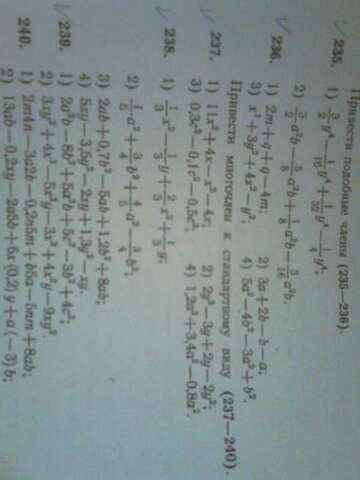 Привести подобные члены (235—236).
235. 1) 3/2 y⁴ − 1/16 y⁴ + 1/32 y⁴ − 1/4 y⁴;
2) 3/2 a²b − 5/8 a²b + 1/8 a²b − 3/16 a²b.
236. 1) 2m + q + q − 4m; 2) 3a + 2b − b − a;
3) x² + 3y² + 4x² − y²; 4) 5a² − 4b² − 3a² + b².
Привести многочлен к стандартному виду (237—240).
237. 1) 11x² + 4x − x² − 4x; 2) 2y² − 3y + 2y − 2y²;
3) 0,3c² − 0,1c² − 0,5c²; 4) 1,2a² + 3,4a² − 0,8a².
238. 1) 1/3 x² − 1/3 y + 2/3 x² + 1/3 y;
2) 1/5 a² + 3/4 b² + 4/5 a² − 3/4 b²;
3) 2ab + 0,7b² − 5ab + 1,2b² + 8ab;
4) 5xy − 3,5y² − 2xy + 1,3y² − xy.
239. 1) 2a²b − 8b² + 5a²b + 5c² − 3b² + 4c²;
2) 3xy² + 4x³ − 5x²y − 3x³ + 4x²y − 9xy².
240. 1)
2) 13ab − 0,2xy − 2a5b + 6x (0,2) y + a (−3) b;